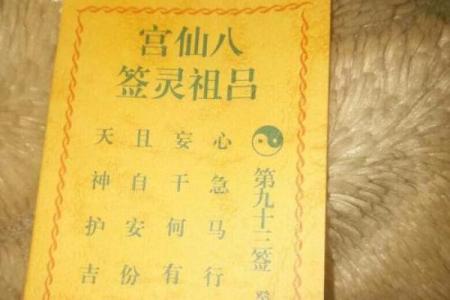 八仙宫
吕祖灵签
第九十二签
心急马行
妄干何有
且自安份
天神护吉